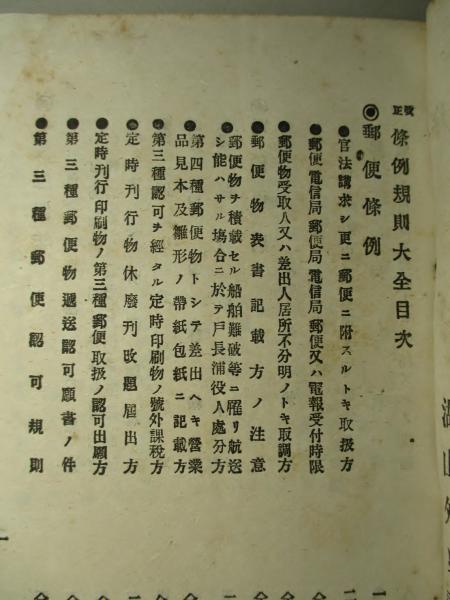 改正 條例規則大全目次
◉郵便條例
●官法講求シ更ニ郵便ニ附スルトキ取扱方
●郵便電信局郵便局電信局郵便又ハ電報受付時限
●郵便物受取人又ハ差出人居所不分明ノトキ取調方
●郵便物表書記載方ノ注意
●郵便物ヲ積載セル船舶難破等ニ罹リ航送
シ能ハサル塲合ニ於テ戸長浦役人處分方
●第四種郵便物トシテ差出スヘキ營業
品見本及雛形ノ帶紙包紙ニ記載方
●第三種認可ヲ經タル定時印刷物ノ號外課税方
●定時刊行物休廢刊改題屆出方
●定時刊行印刷物ノ第三種郵便取扱ノ認可出願方
●第三種郵便物遞送認可願書ノ件
●第三種郵便認可規則